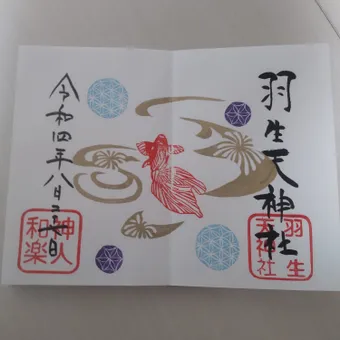 羽生天神社
羽生
天神社
令和四年八月日
神人
和楽